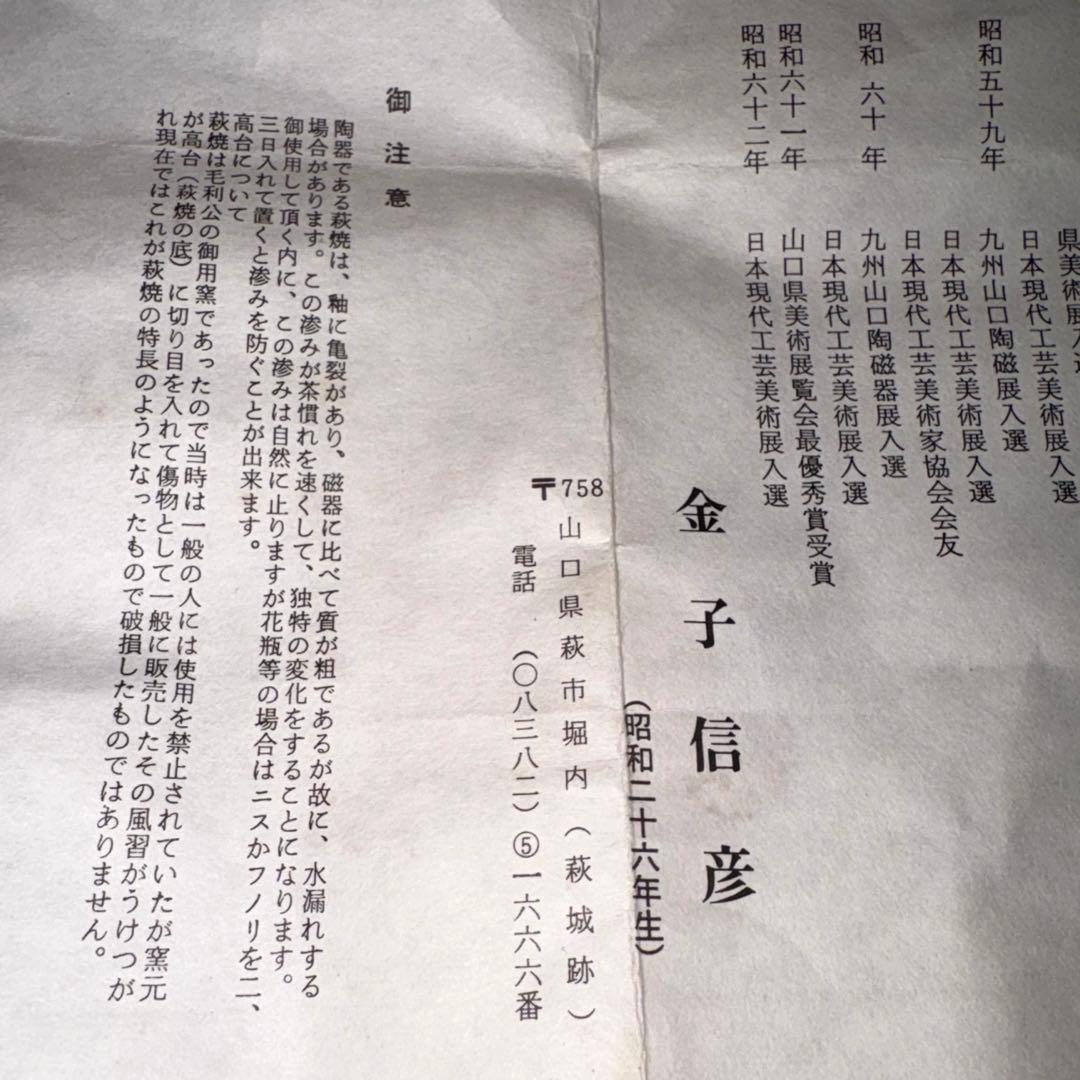 県美術展入選
日本現代工芸美術展入選
昭和五十九年 九州山口陶磁展入選
日本現代工芸美術展入選
日本現代工芸美術家協会会友
昭和 六十 年 九州山口陶磁器展入選
日本現代工芸美術展入選
昭和六十一年 山口県美術展覧会最優秀賞受賞
昭和六十二年 日本現代工芸美術展入選
金子信彦
(昭和二十六年生)
〒758 山口県萩市堀内(萩城跡)
電話 (〇八三八二)⑤一六六六番
御注意
陶器である萩焼は、釉に亀裂があり、磁器に比べて質が粗であるが故に、水漏れする
場合があります。この滲みが茶慣れを速くして、独特の変化をすることになります。
御使用して頂く内に、この滲みは自然に止りますが花瓶等の場合はニスかフノリを二、
三日入れて置くと滲みを防ぐことが出来ます。
高台について
萩焼は毛利公の御用窯であったので当時は一般の人には使用を禁止されていたが窯元
が高台(萩焼の底)に切り目を入れて傷物として一般に販売したその風習がうけつが
れ現在ではこれが萩焼の特長のようになったもので破損したものではありません。